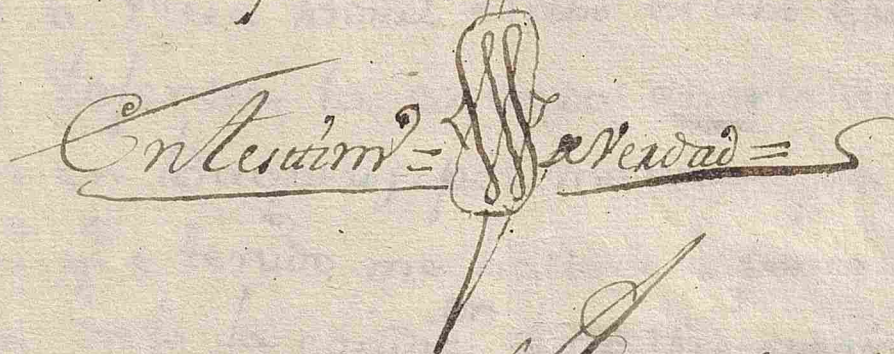 En testim.º = de Verdad =